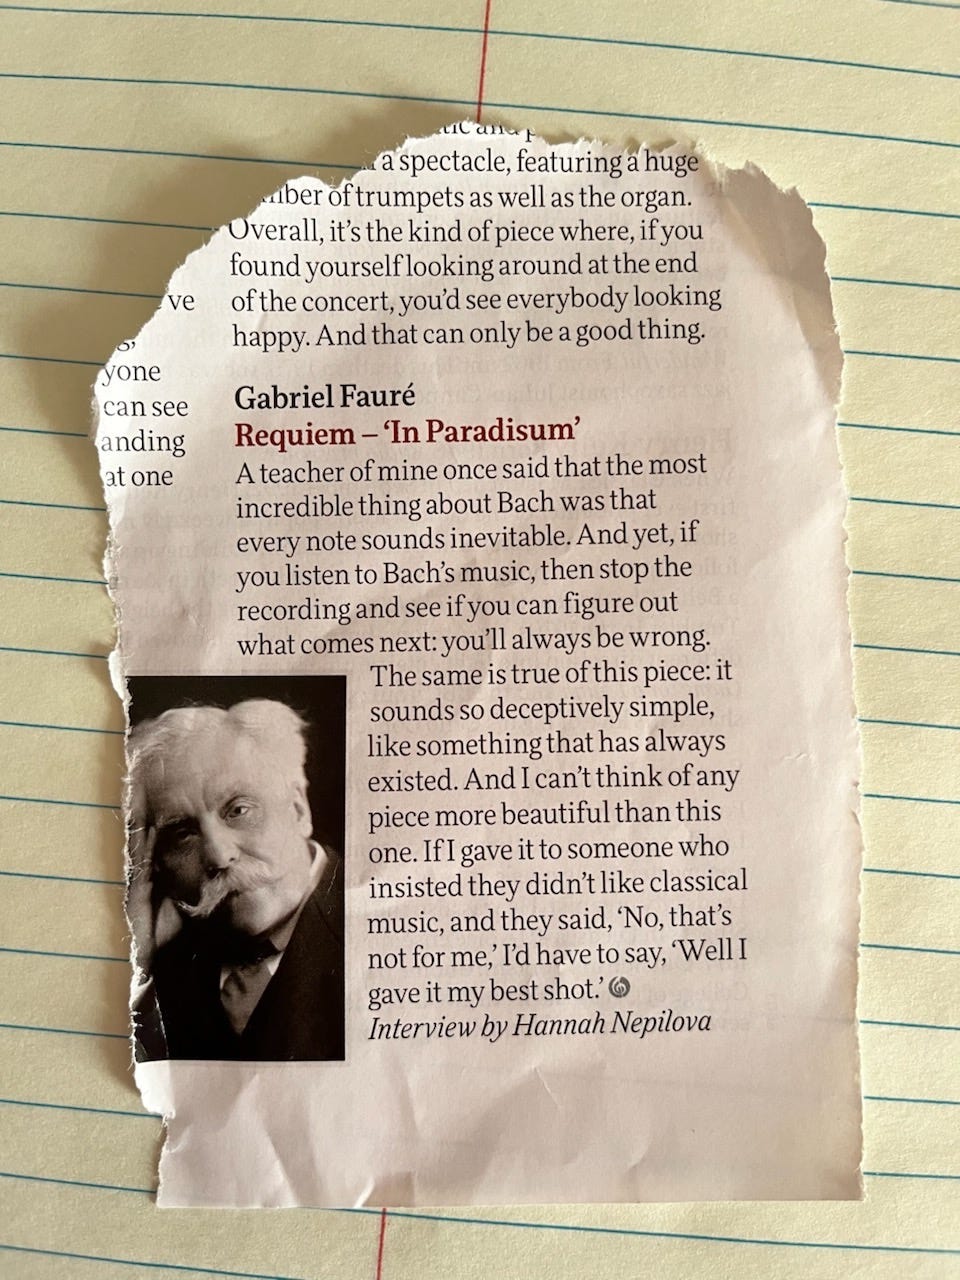 a spectacle, featuring a huge
of trumpets as well as the organ.
Overall, it's the kind of piece where, if you
found yourself looking around at the end
of the concert, you'd see everybody looking
happy. And that can only be a good thing.
ve
yone
can see
anding
at one
Gabriel Fauré
Requiem – 'In Paradisum'
A teacher of mine once said that the most
incredible thing about Bach was that
every note sounds inevitable. And yet, if
you listen to Bach's music, then stop the
recording and see if you can figure out
what comes next: you'll always be wrong.
The same is true of this piece: it
sounds so deceptively simple,
like something that has always
existed. And I can't think of any
piece more beautiful than this
one. If I gave it to someone who
insisted they didn't like classical
music, and they said, 'No, that's
not for me,' I'd have to say, 'Well I
gave it my best shot.'
Interview by Hannah Nepilova